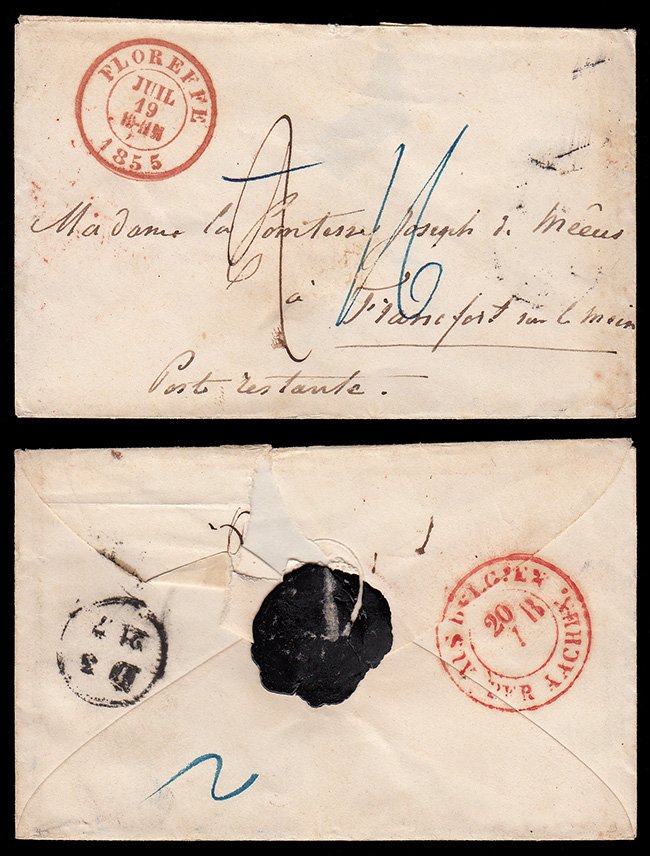 FLOREFFE
JUIL
19
1855
Madame la Comtesse Joseph de Meêus
à Francfort sur le Mein
Poste restante.
16
AUS BELGIEN PER AACHEN
20
D 3
21 7
2